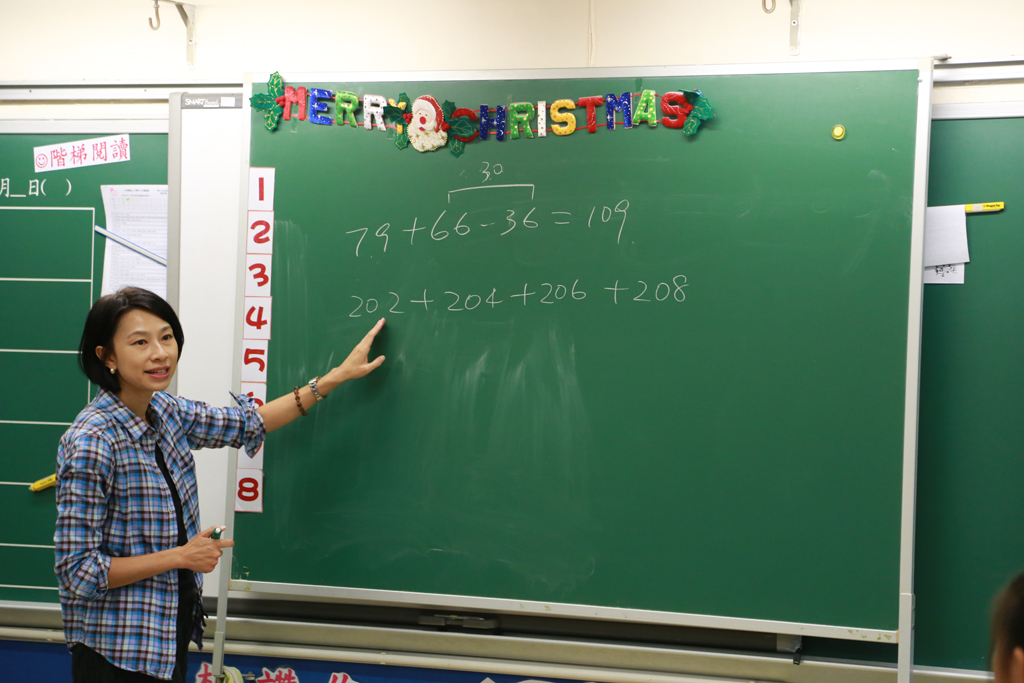 MERRY CHRISTMAS
SMART Board
階梯閱讀
月__日( )
30
79+66-36=109
202+204+206+208
1
2
3
4
5
8